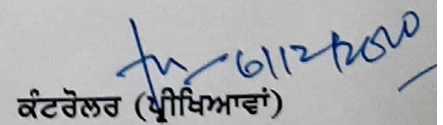 6/12/2020
ਕੰਟਰੋਲਰ (ਪ੍ਰੀਖਿਆਵਾਂ)